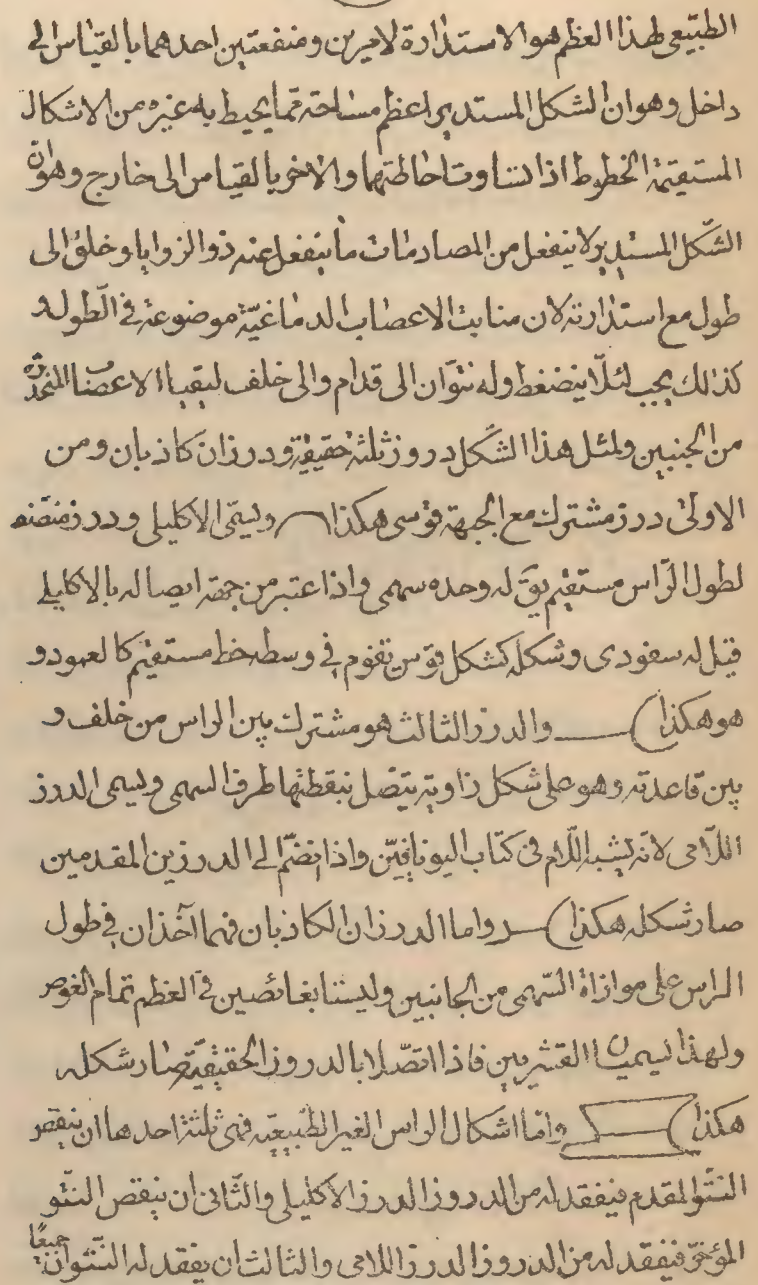 الطبيعى لهذا العظم هو الاستدارة لامرين ومنفعتين احدهما بالقياس الى
داخل وهو ان الشكل المستدير اعظم مساحته مما يحيط به غيره من الاشكال
المستقيمة الخطوط اذا تساوت احاطتها والاخر بالقياس الى خارج وهو ان
الشكل المستدير لا ينفعل من المصادمات ما ينفعل عنه ذو الزوايا وخلق الى
طول مع استدارته لان منابت الاعصاب الدماغية موضوعة فى الطول و
كذلك يجب لئلا ينضغط وله نتوان الى قدام والى خلف ليقيا الاعصاب المنحدرة
من الجنبين ولمثل هذا الشكل دروز ثلثة حقيقية ودرزان كاذبان ومن
الاولى درز مشترك مع الجبهة قوسى هكذا ويسمى الاكليلى ودرز منصف
لطول الراس مستقيم يق له وحده سهمى واذا اعتبر من جهة اتصاله بالاكليلى
قيل له سفودى وشكله كشكل قوس يقوم فى وسطه خط مستقيم كالعمود و
هو هكذا والدرز الثالث هو مشترك بين الراس من خلف و
بين قاعدته وهو على شكل زاوية يتصل بنقطتها طرف السهمى ويسمى الدرز
اللامى لانه يشبه اللام فى كتاب اليونانيين واذا انضم الى الدرزين المقدمين
صار شكله هكذا واما الدرزان الكاذبان فهما آخذان فى طول
الراس على موازاة السهمى من الجانبين وليستا بغائصين فى العظم تمام الغوص
ولهذا يسميان القشريين فاذا اتصلا بالدروز الحقيقية صار شكله
هكذا واما اشكال الراس الغير الطبيعية فهى ثلثة احدها ان ينقص
النتو المقدم فيفقد له من الدروز الدرز الاكليلى والثانى ان ينقص النتو
المؤخر فيفقد له من الدروز الدرز اللامى والثالث ان يفقد له النتوان جميعًا